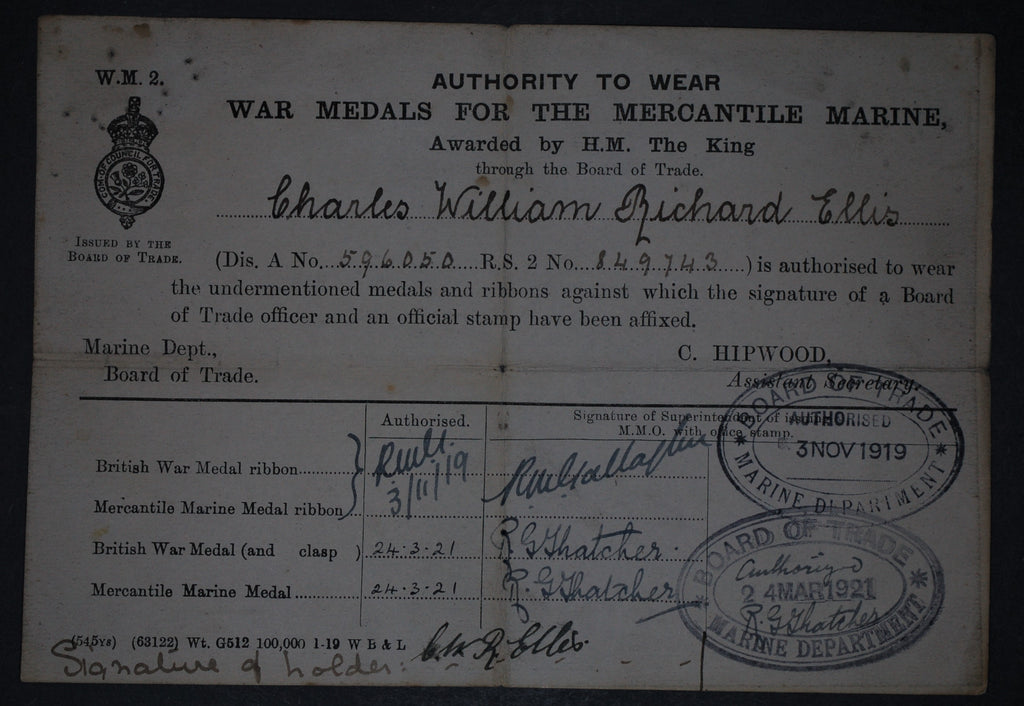 W.M. 2.
AUTHORITY TO WEAR
WAR MEDALS FOR THE MERCANTILE MARINE,
Awarded by H.M. The King
through the Board of Trade.
Charles William Richard Ellis
ISSUED BY THE
BOARD OF TRADE.
(Dis. A No. 596050 R.S. 2 No. 849743) is authorised to wear
the undermentioned medals and ribbons against which the signature of a Board
of Trade officer and an official stamp have been affixed.
Marine Dept.,
Board of Trade.
C. HIPWOOD,
Assistant Secretary.
Authorised.
Signature of Superintendent of
M.M.O. with office stamp.
BOARD OF TRADE
AUTHORISED
3 NOV 1919
MARINE DEPARTMENT
British War Medal ribbon
3/11/19
Mercantile Marine Medal ribbon
British War Medal (and clasp ) 24.3.21 R. G Thatcher.
Mercantile Marine Medal 24.3.21 R. G Thatcher
BOARD OF TRADE
Authorised
24 MAR 1921
R. G Thatcher
MARINE DEPARTMENT
(545ys) (63122) Wt. G512 100,000 1-19 W B & L
Signature of holder: C. W. R. Ellis.